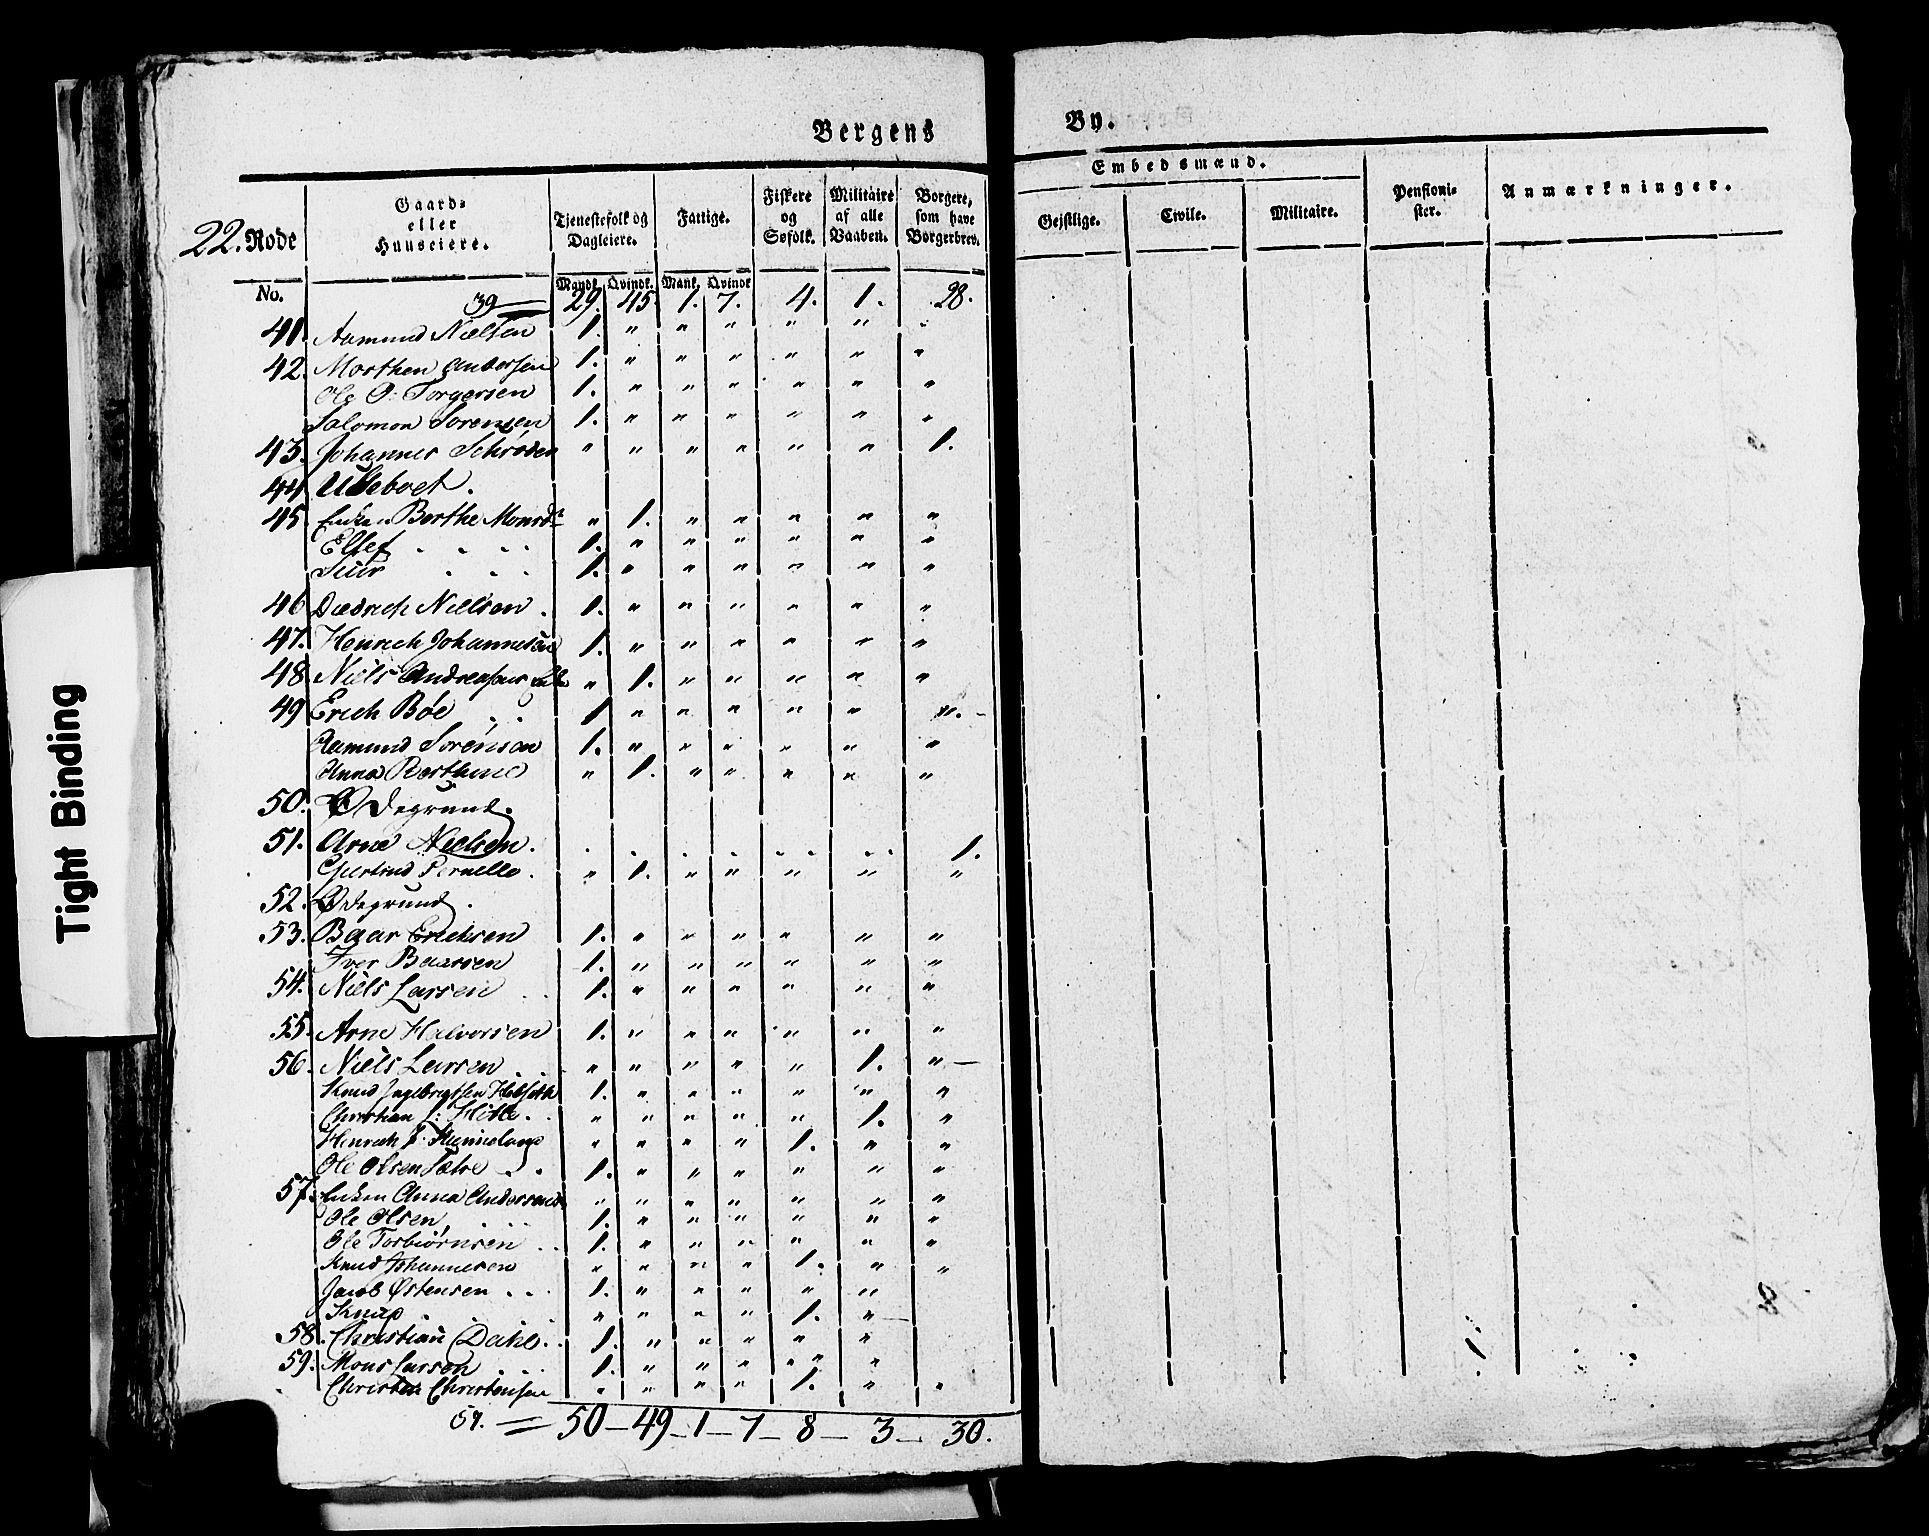 Bergens By.
22. Rode
No.
Gaard- eller Huuseiere.
Tjenestefolk og Dagleiere.
Fattige.
Fiskere og Søfolk.
Militaire af alle Vaaben.
Borgere, som have Borgerbrev.
Embedsmænd.
Gejstlige. Civile. Militaire.
Pensionister.
Anmærkninger.
Mandk. Qvindk. Mank. Qvindk
39 29. 45 1. 7. 4. 1. 28.
41. Aamund Nielsen 1. " " " " " "
42. Morthen Andersen 1. " " " " " "
Ole O: Torgersen 1. " " " " " "
Salomon Sorensen 1. " " " " " "
43. Johannes Schrøder " " " " " " 1.
44 Ubeboet.
45 Enken Berthe Monsd " 1. " " " " "
Ellef . . . . 1. " " " " " "
Siur . . . 1. " " " " " "
46 Diedrich Nielsen . 1. " " " " " "
47. Henrich Johannesen 1. " " " " " "
48 Niels Andreasens Enke " 1. " " " " "
49 Erich Bøe . . 1 " " " " " ". -
Aamund Sorenson 1. " " " " " "
Anna Berthine " 1. " " " " "
50. Ødegrund.
51. Arne Nielsen. . . . . . . 1.
Giertrud Pernelle . " 1. " " " " "
52. Ødegrund .
53. Baar Erichsen 1. " " " " " "
Iver Baarsen 1. " " " " " "
54. Niels Larsen . . 1. " " " " " "
55. Arne Halvorsen 1. " " " " " "
56. Niels Larsen . . " " " " " 1. " —
Knud Ingebregtsen 1. " " " " " "
Christian " " " " " 1. "
Henrich " " " " 1. " "
Ole Olsen Sælve . . 1. " " " " " "
57. Enken Anna Andersens " " " " " " "
Ole Olsen, . . . 1. " " " " " "
Ole Torbiørnsen . . 1. " " " " " "
Knud Johannesen " " " " 1. " "
Jacob Østensen . . . 1. " " " " "
Knap . . . " " " " 1. " —
58. Christian Dahl. . 1. " " " " "
59. Mons Larsen . . . 1. " " " " " "
Christen Christensen " " " " 1. " "
57. = 50 — 49 — 1 — 7 — 8 — 3 — 30.
Tight Binding